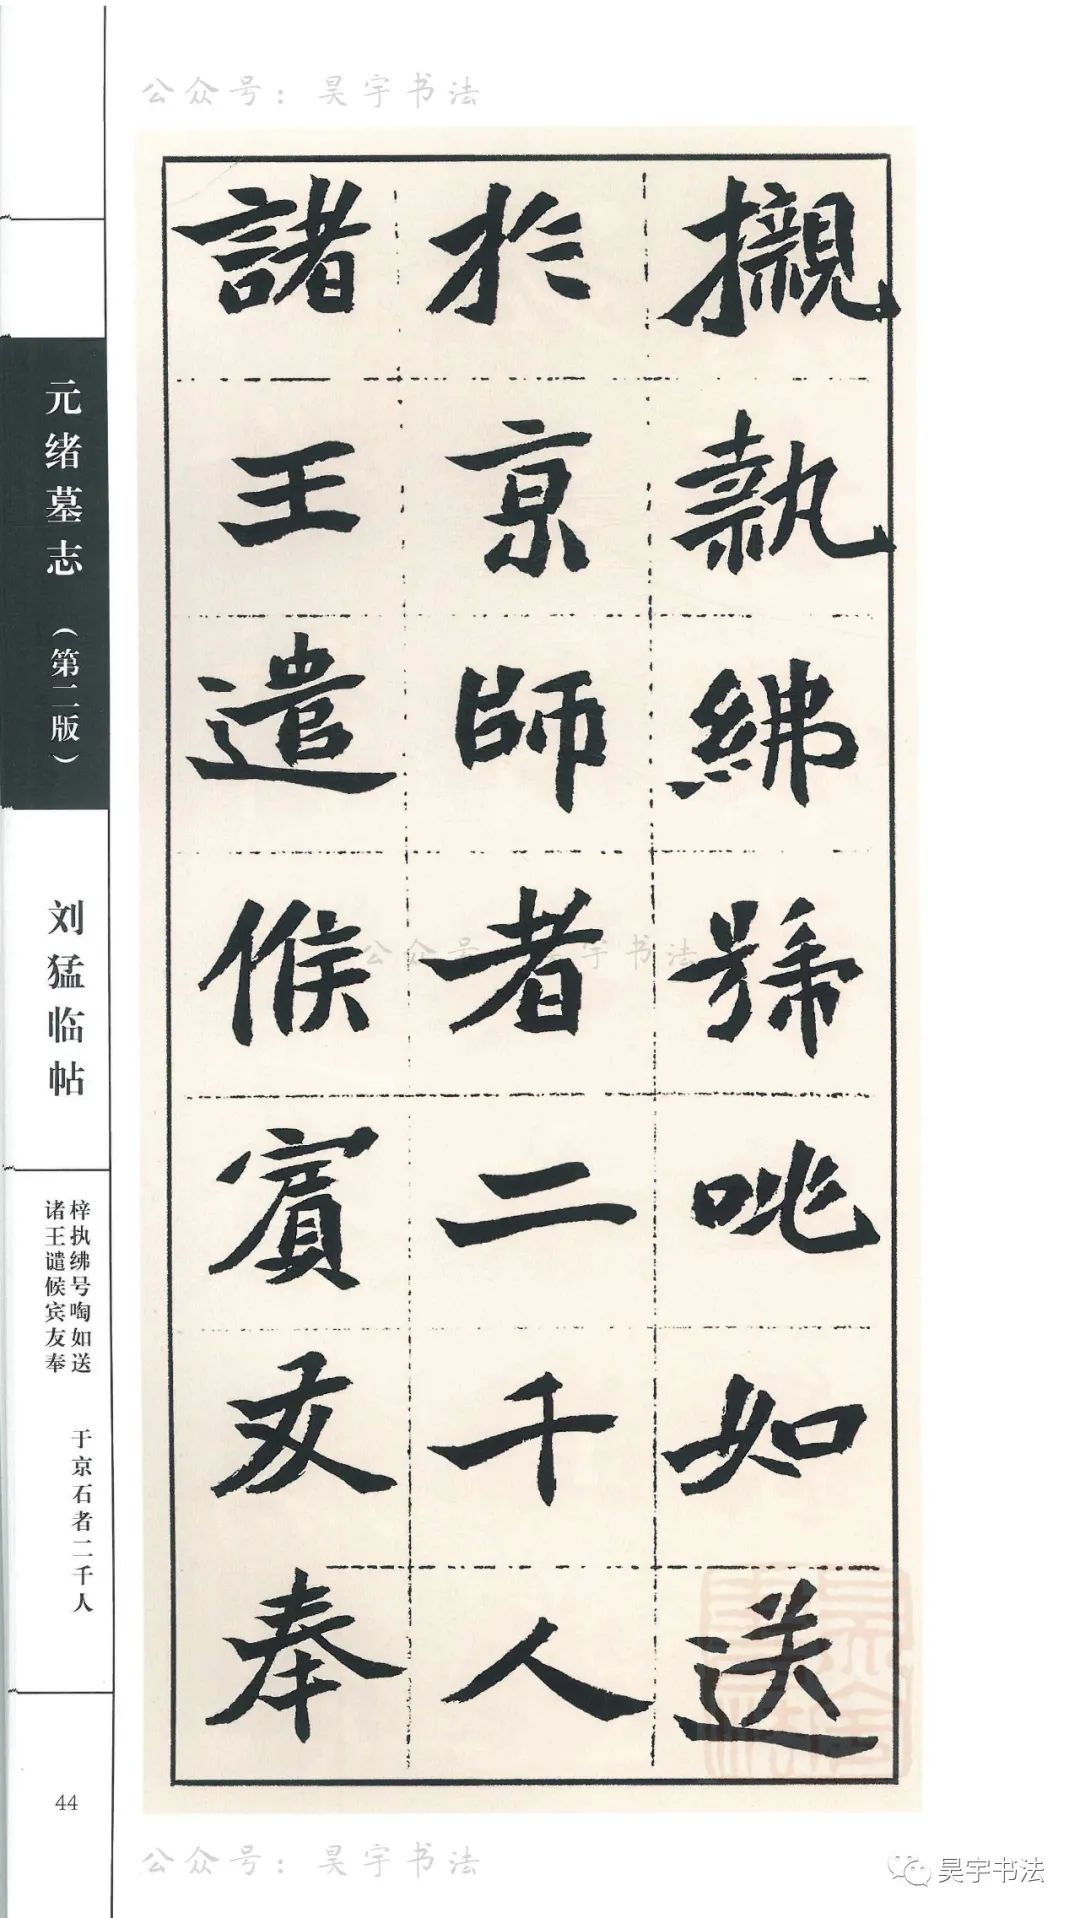 公众号：昊宇书法
櫬執紼號咷如送
於京師者二千人
諸王遣候賓友奉
公众号 昊宇书法
元绪墓志（第二版）
刘猛临帖
梓执绋号啕如送
诸王谴候宾友奉
于京石者二千人
44
公众号：昊宇书法
昊宇书法